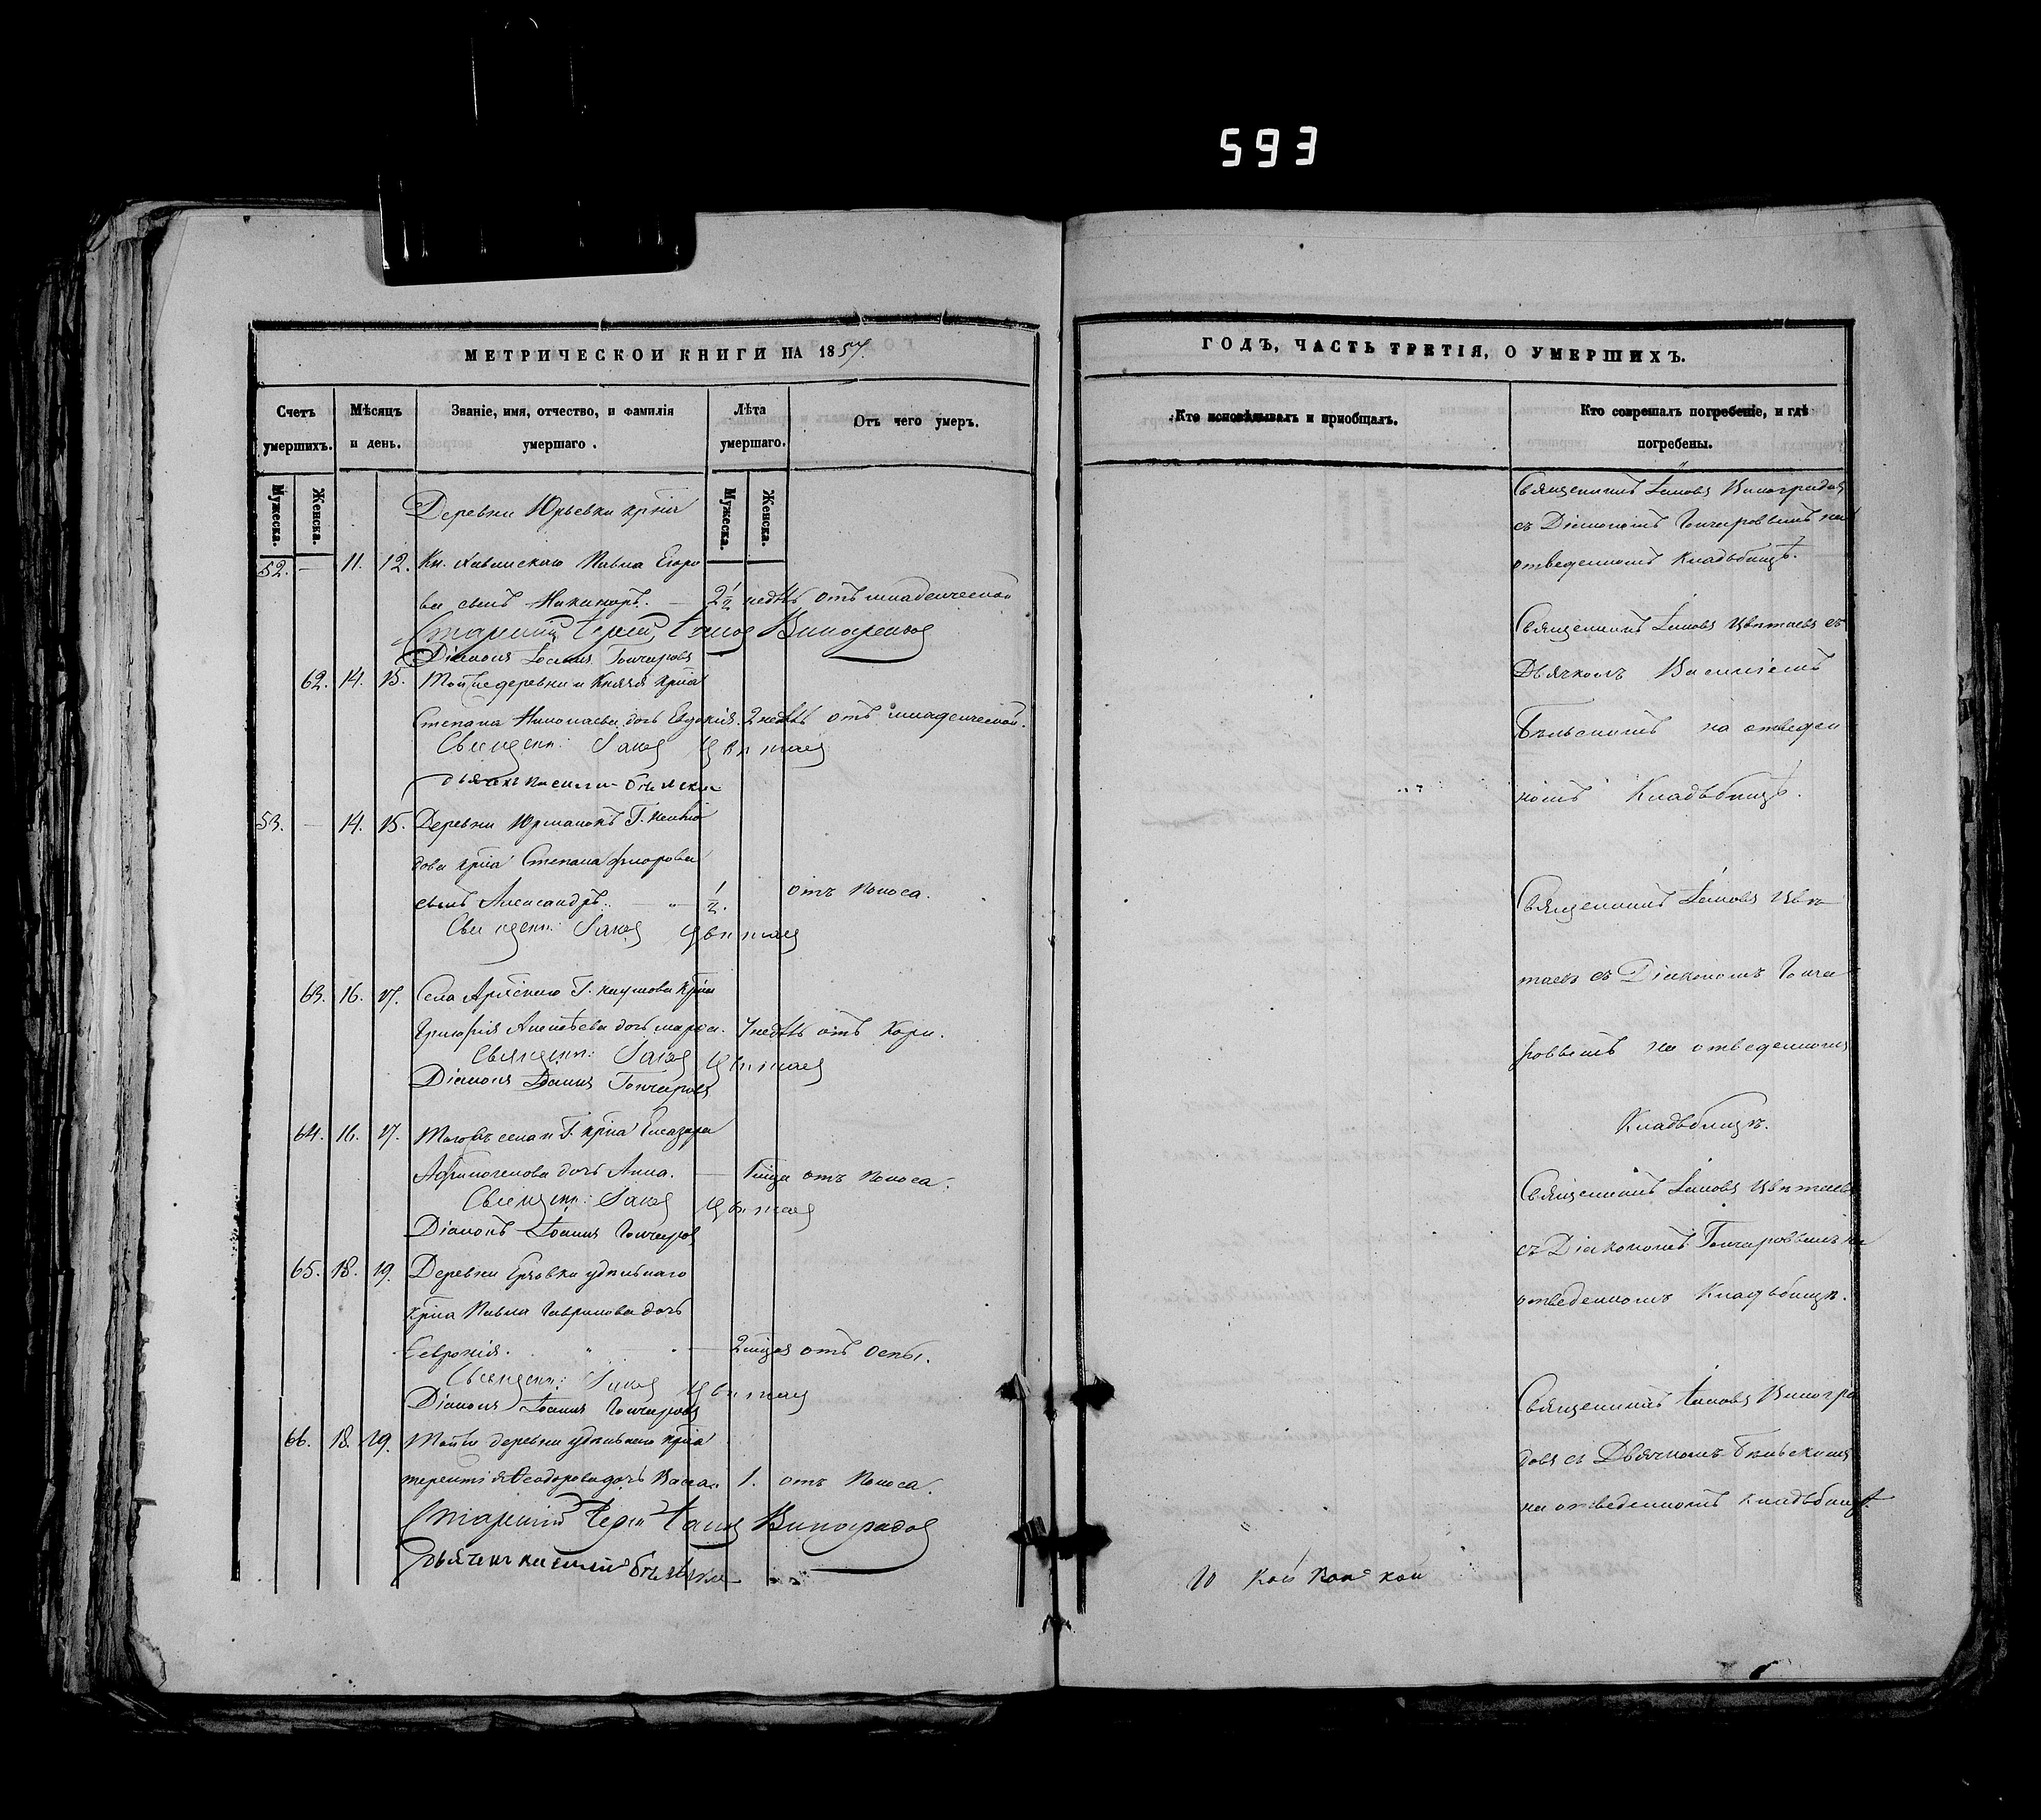 593
МЕТРИЧЕСКОИ КНИГИ НА 1857.
Счетъ умершихъ.
Мѣсяцъ и день.
Званіе, имя, отчество, и фамилія умершаго.
Лѣта умершаго.
Отъ чего умеръ.
Мужеска.
Женска.
Мужеска.
Женска.
Деревни Юрьевки
52. — 11. 12. Кн. Павла Егоро
ва сынъ 2 1/2 недѣль отъ младенческой
Старший Іерей Виноградов
Діаконъ Іоаннъ Гончаровъ
62. 14. 15. Тойже деревни и Князя крна
Степана Николаева дочь Евдокія. 2 недѣль отъ младенческой.
Священ: Іаков Цвѣтаев
дьячекъ Василий Бѣльский
53. — 14. 15. Деревни Г.
дова крна Степана
сынъ Александръ. — 1/2. отъ поноса.
Священ: Іаков Цвѣтаев
63. 16. 17. Села Г. Наумова крна
Алексѣева дочь Марѳа. 7 недѣль отъ Кори.
Священ: Іаков Цвѣтаев
Діаконъ Іоаннъ Гончаровъ
64. 16. 17. Тогожъ села и Г. крна Елеазара
Афиногенова дочь Анна. — отъ поноса.
Священ: Іаков Цвѣтаев
Діаконъ Іоаннъ Гончаров
65. 18. 19. Деревни удѣльнаго
крна Павла Гаврилова дочь
Февронія. — 2 отъ Оспы.
Священ: Іаков Цвѣтаев
Діаконъ Іоаннъ Гончаровъ
66. 18. 19. Тойже деревни удѣльнаго крна
терентія Ѳеодорова дочь 1. отъ Поноса.
Старший Іерей Виноградов
Дьячекъ Василий Бѣльский
ГОДЪ, ЧАСТЬ ТРЕТІЯ, О УМЕРШИХЪ.
Кто исповѣдывалъ и приобщалъ.
Кто совершалъ погребеніе, и гдѣ погребены.
Священникъ Іаковъ Виноградов
съ Діакономъ Гончаровымъ на
отведенномъ Кладьбищѣ.
Священникъ Іаковъ Цвѣтаевъ съ
Дьячкомъ Василіемъ
Бѣльскимъ на отведен
номъ Кладьбищѣ.
Священникъ Іаковъ Цвѣ
таевъ съ Діакономъ Гонча
ровымъ на отведенномъ
Кладьбищѣ.
Священникъ Іаковъ Цвѣтаевъ
съ Діакономъ Гончаровымъ на
отведенномъ Кладьбищѣ.
Священникъ Іаковъ Виногра
довъ съ Дьячкомъ Бѣльскимъ
на отведенномъ кладьбищѣ
кой кой кой